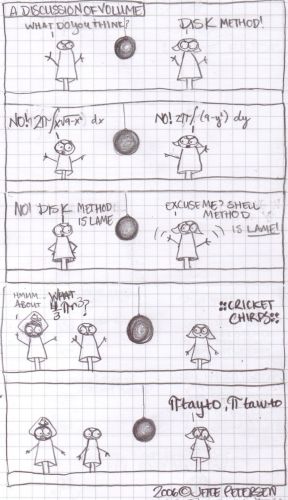 A DISCUSSION OF VOLUME
WHAT DO YOU THINK?
DISK METHOD!
NO! 2π∫x√9-x² dx
NO! 2π∫(9-y²) dy
NO! DISK METHOD
IS LAME
EXCUSE ME? SHELL
METHOD
IS LAME!
HMMM.. WHAT
ABOUT 4/3 πr³?
::CRICKET
CHIRPS::
πtayto, πtawto
2006 © JETTE PETERSEN